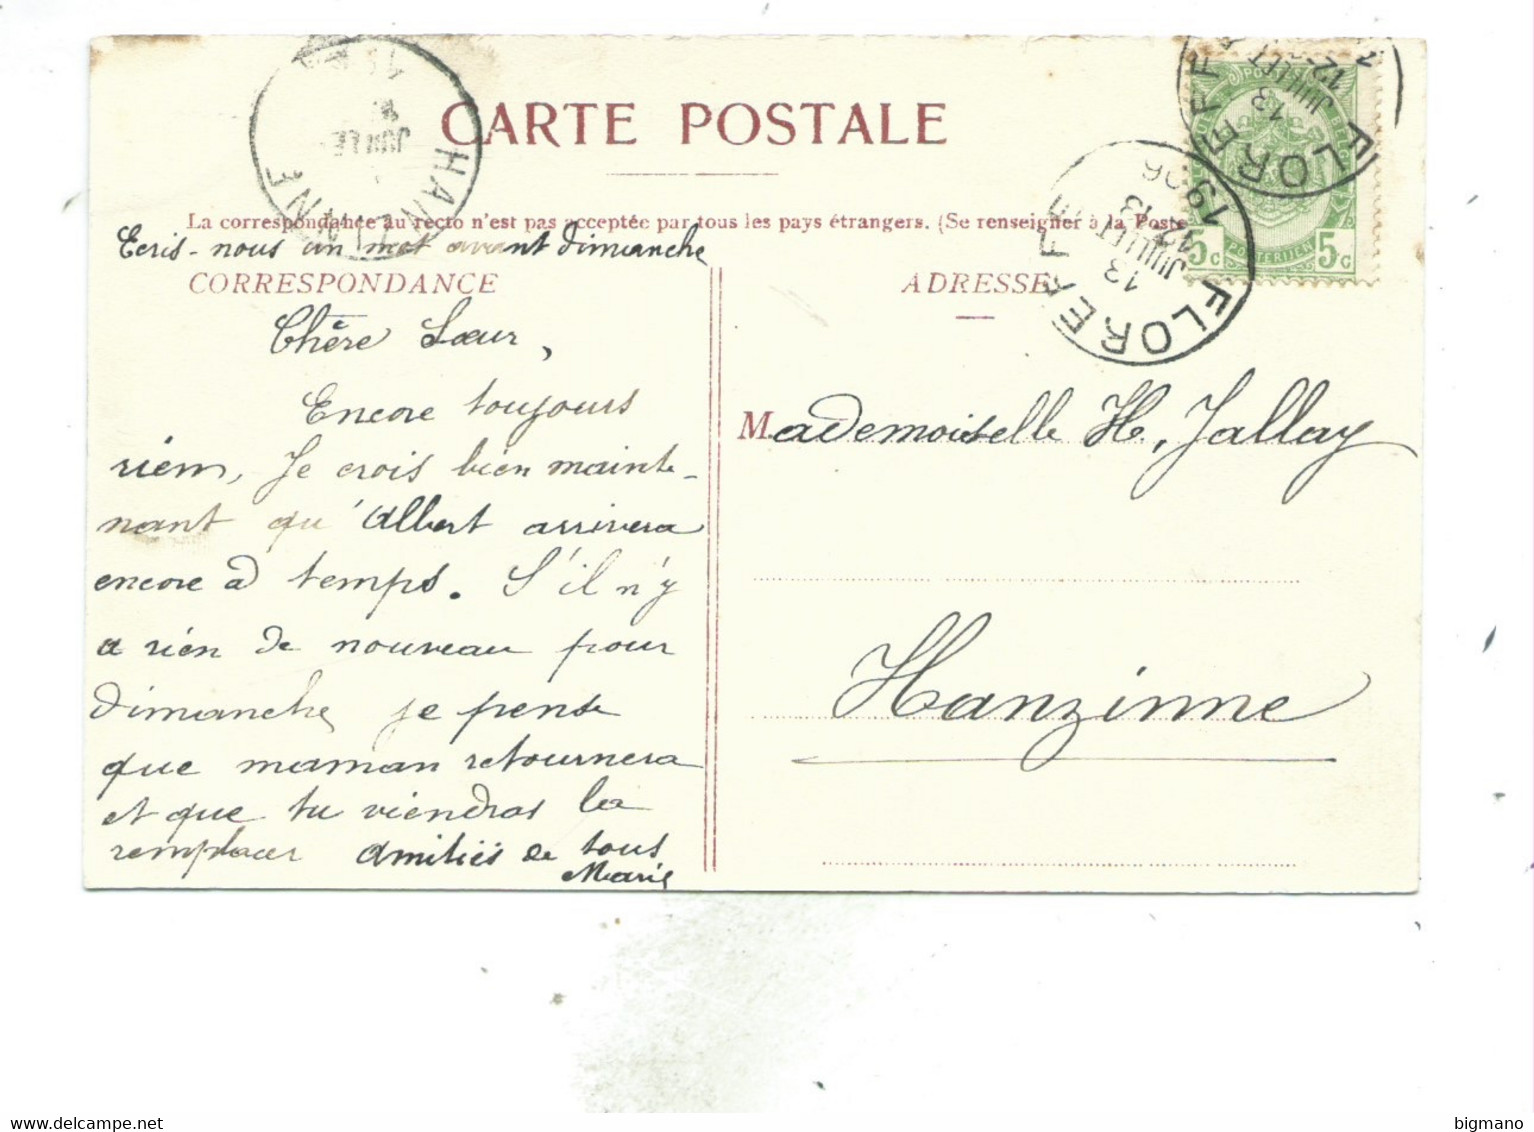 CARTE POSTALE
La correspondance au recto n'est pas acceptée par tous les pays étrangers. (Se renseigner à la Poste
Ecris-nous un mot avant dimanche
CORRESPONDANCE
Chère Sœur,
Encore toujours
rien, Je crois bien mainte-
nant qu'Albert arrivera
encore à temps. S'il n'y
a rien de nouveau pour
dimanche je pense
que maman retournera
et que tu viendras la
remplacer amitiés de tous
Marie
ADRESSE
Mademoiselle H, Jallay
Hanzinne
HANZINNE
JUILLET
FLOREFFE
13
JUILLET
12-13
1906
FLOREFFE
13
JUILLET
POSTERIJEN
5c
5c
bigmano